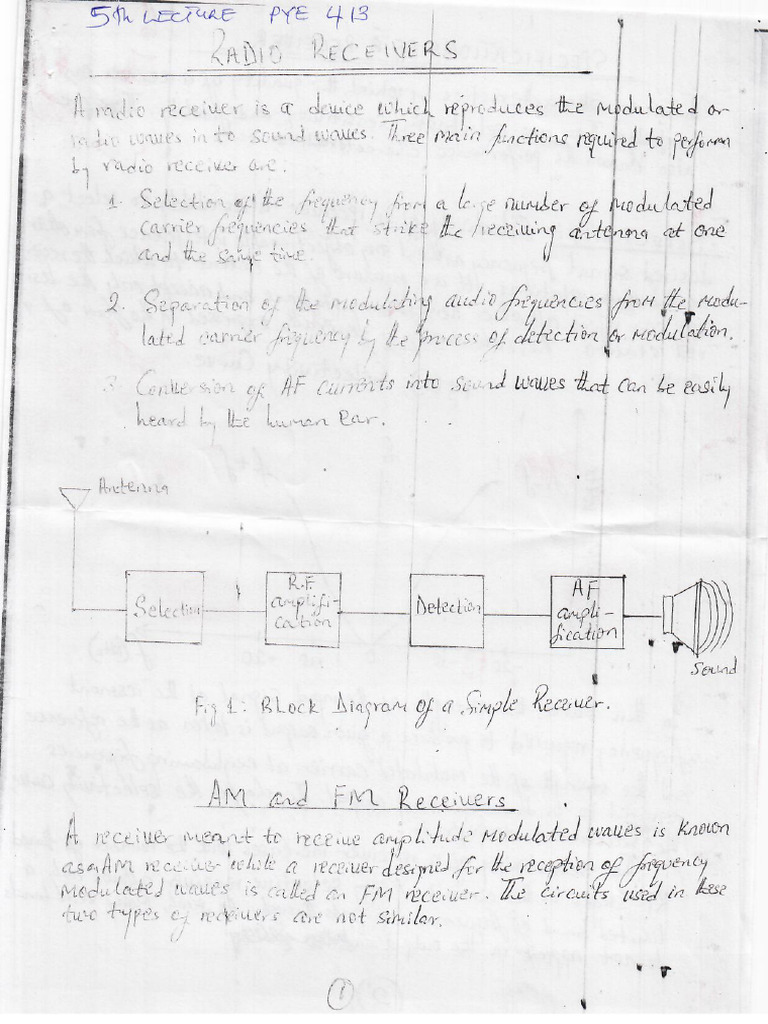 5th LECTURE PYE 413
RADIO RECEIVERS
A radio receiver is a device which reproduces the modulated or
radio waves in to sound waves. Three main functions required to perform
by radio receiver are:
1. Selection of the frequency from a large number of modulated
carrier frequencies that strike the receiving antenna at one
and the same time.
2. Separation of the modulating audio frequencies from the modu-
lated carrier frequency by the process of detection or modulation.
3. Conversion of AF currents into sound waves that can be easily
heard by the human ear.
Antenna
Selection
R.F.
amplifi-
cation
Detection
AF
ampli-
fication
Sound
Fig 1: Block Diagram of a Simple Receiver.
AM and FM Receivers
A receiver meant to receive amplitude modulated waves is known
as an AM receiver while a receiver designed for the reception of frequency
modulated waves is called an FM receiver. The circuits used in these
two types of receivers are not similar.
1